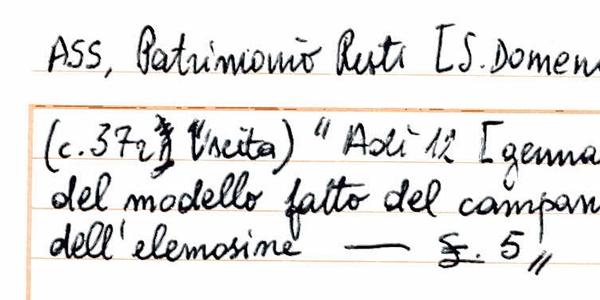 ASS, Patrimonio Resti [S. Domen
(c. 372 Uscita) " Adì 12 [genna
del modello fatto del campan
dell'elemosine — £. 5 "